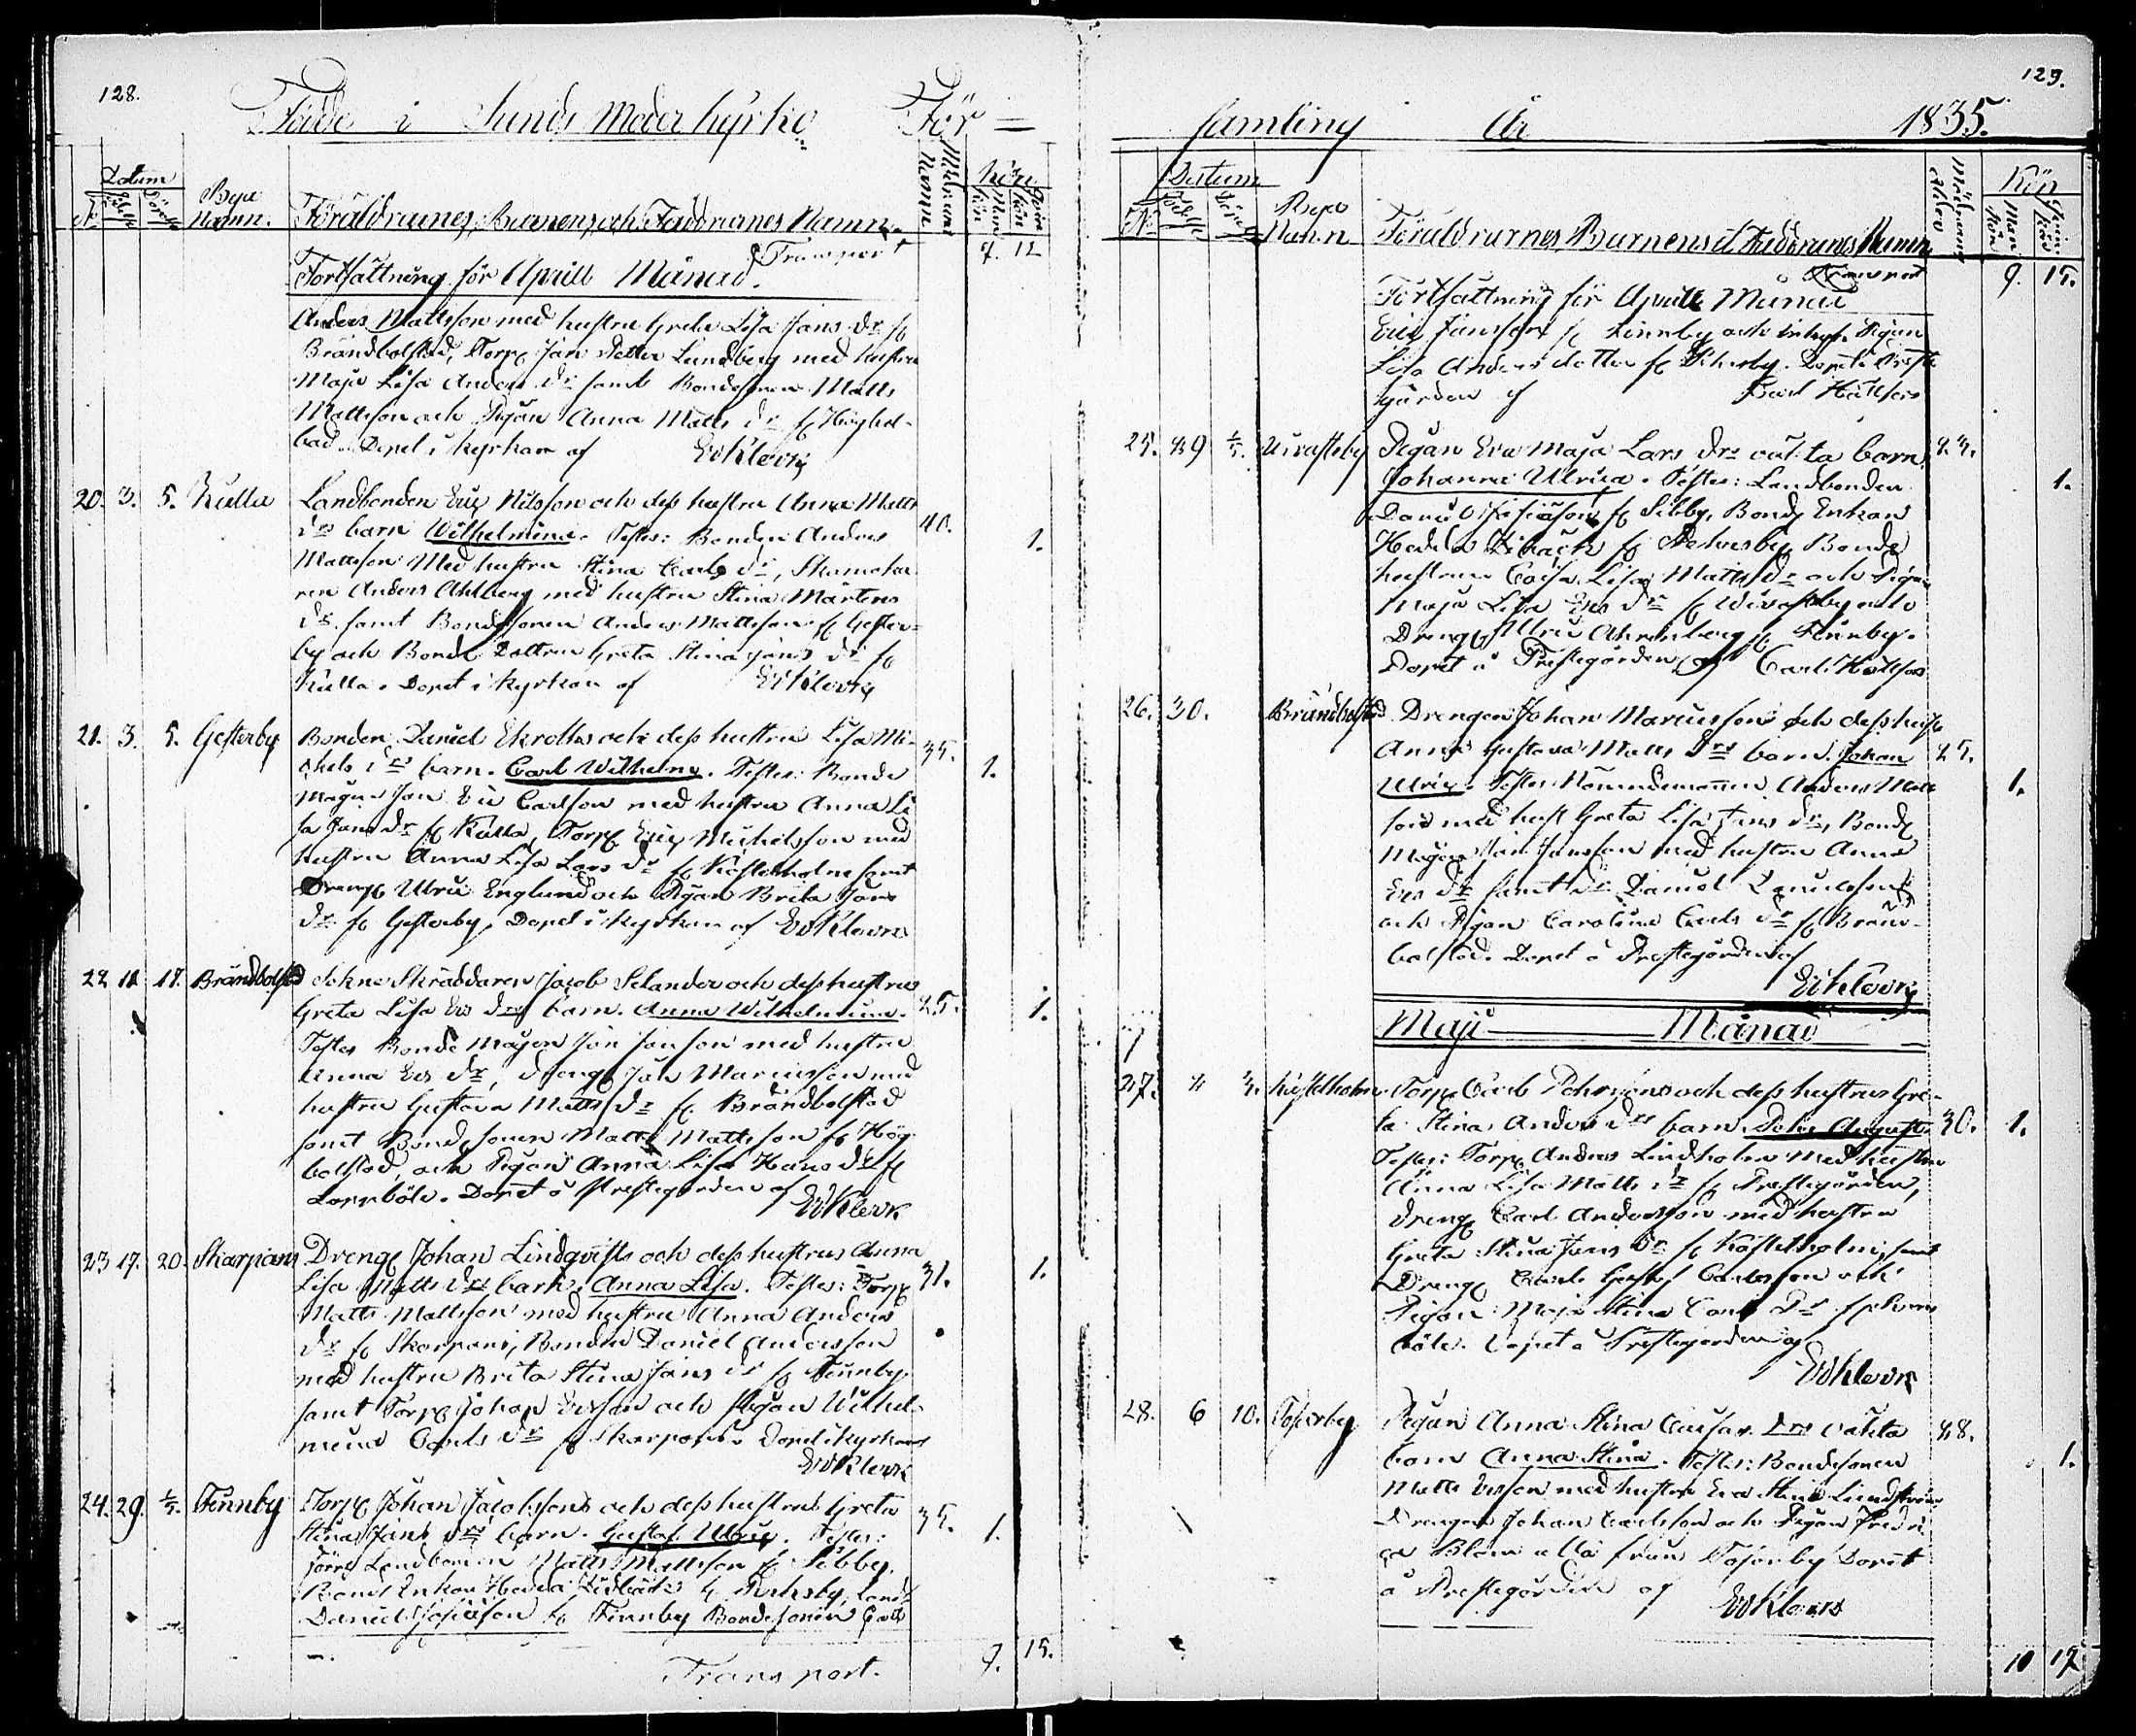 128.
Födde i Sunds Moderkyrko För=
Datum
N:o Födelse Döpelse
Byars Namn.
Föräldrarnes, Barnens, och Faddrarnes Namn.
Mödrarnes Åldrar
Kön
Mankön Qvinkön
Transport 7. 12
Fortsättning för Aprill Månad.
Anders Mattsson med hustru Greta Lisa Jans dr fr
Brändbolstad, Torp. Jan Petter Lundberg med hustru
Maja Lisa Anders dr samt Bondesonen Matts
Mattsson och Pigan Anna Matts dr fr Högbol-
stad. Döpt i kyrkan af
20. 3. 5. Kulla Landbonden Eric Nilsson och dess hustru Anna Matts
drs barn Wilhelmina. Testes: Bonden Anders 40. 1.
Mattsson Med hustru Stina Carls dr, Skomaka
ren Anders Ahlberg med hustru Stina Mårtens
dr samt Bondesonen Anders Mattsson fr Gester-
by och Bonde Dottren Greta Stina Jans dr fr
Kulla. Döpt i kyrkan af
21. 3. 5. Gesterby Bonden Daniel Ekroths och dess hustru Lisa Mi-
chels drs barn. Carl Wilhelm. Testes: Bonde 35. 1.
Mågen Jan Eric Carlson med hustru Anna Li
sa Jans dr fr Kulla, Torp. Eric Michelsson med
hustru Anna Lisa Lars dr fr Kastelholm samt
Dreng Ulric Englund och Pigan Brita Jans
dr fr Gesterby, Döpt i kyrkan af
22 18 Brändbolstad Sokne Skräddaren Jacob Selander och dess hustrus
Greta Lisa Ers drs barn. Anna Wilhelmina. 25. 1.
Testes Bonde Mågen Jan Janson med hustru
Anna Ers dr, Dreng Jan Marcusson med
hustru Gustava Matts dr fr Brändbolstad
samt Bonde sonen Matts Mattsson fr Hög
bolstad, och Pigan Anna Lisa Hans dr fr
Loppböle. Döpt å Prestegården af
23 17. 20. Skarpans Dreng Johan Lindqvists och dess hustrus Anna
Lisa Matts drs barn. Anna Lisa. Testes: Torp 31. 1.
Matts Mattsson med hustru Anna Anders
dr fr Skarpans, Bonden Daniel Andersson
med hustru Brita Stina Jans dr fr Finnby
samt Torp Johan Ersson och Pigan Wilhel-
mina Carls dr fr Skarpans. Döpt i kyrkan
24. 29. Finnby Torp. Johan Jacobssons och dess hustrus Greta
Stina Jans drs barn. Gustaf Ulric. Testes: 35. 1.
Förre Landbonden Matts Mattsson fr Sibby.
Bond Enkan Hedda
Daniel Josiason fr Finnby Bondesonen Carl
Transport. 9. 15.
129.
samling År 1835.
Datum
N:o Födelse Döpelse
Byars Namn
Föräldrarnes, Barnens et Faddrarnes Namn
Mödrarnes Ålder
Kön
Mankön Qvinkön
Transport 9. 15.
Fortsättning för Aprill Månad
Eric Jansson fr Finnby och Pigan
Lisa Anders dotter fr Döpt å Preste
gården af
25. 29 Pigan Eva Maja Lars drs oäkta barn, 23.
Johanna Ulrica. Testes: Landbonden 1.
Daniel Josiason fr Sibby, Bonde Enkan
Hedda fr Bonde
hustrun Cajsa Lisa Matts dr och Pigan
Maja Lisa Ers dr fr och
Dreng Ulric Ahrenberg fr Finnby.
Döpt å Prestegården af Carl
26. 30. Brändbolstad Drengen Johan Marcussons och dess hustru
Anna Gustava Matts drs barn. Johan 25.
Ulric. Testes: Nämndemannen Anders Matts 1.
son med hust Greta Lisa Jans dr, Bonde
Mågen Jan Jansson med hustru Anna
Ers dr samt dr Daniel Danielsson
och Pigan Carolina Carls dr fr Bränd-
bolstad. Döpt å Prestegården af
Maji Månad
27. 3. Kastelholm Torp. Carl Öhmans och dess hustrus Gre-
ta Stina Anders drs barn. August. 30. 1.
Testes: Torp Anders Lindholm med hustru
Anna Lisa Matts dr fr Prestegården,
Dreng Carl Andersson med hustru
Greta Stina Jans dr fr Kastelholm, samt
Dreng Carl Gustaf Carlsson och
Pigan Maja Stina Carls dr fr
böle. Döpt å Prestegården af
28. 6 10. Tosarby Pigan Anna Stina drs oäkta 28.
barn Anna Stina. Testes: Bondesonen 1.
Matts Ersson med hustru Eva Stina Lundström
Drengen Johan Carlsson och Pigan Fredri
ca Blom alla från Tosarby Döpt
å Prestegården af
10 17